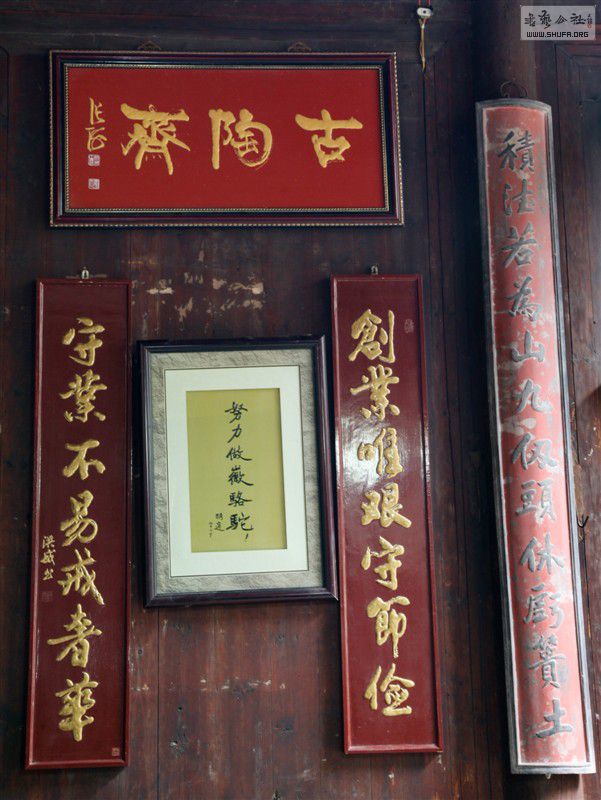 書藝公社
WWW.SHUFA.ORG
古陶齋
積德若為山九仞頭休虧簣土
創業唯艱守節儉
努力做徽駱駝！
胡適
守業不易戒奢華